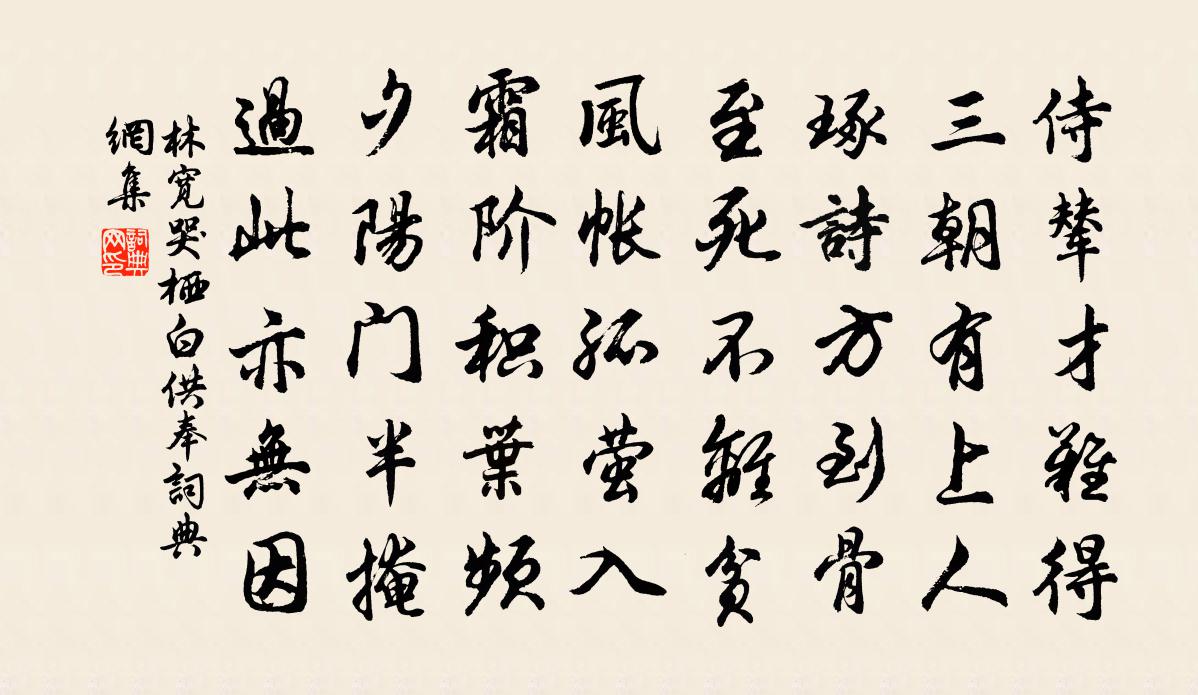 侍辇才難得
三朝有上人
琢詩方到骨
至死不離貧
風帐孤萤入
霜阶积葉频
夕陽门半掩
過此亦無因
林宽哭栖白供奉詞典
網集
詞典
网印